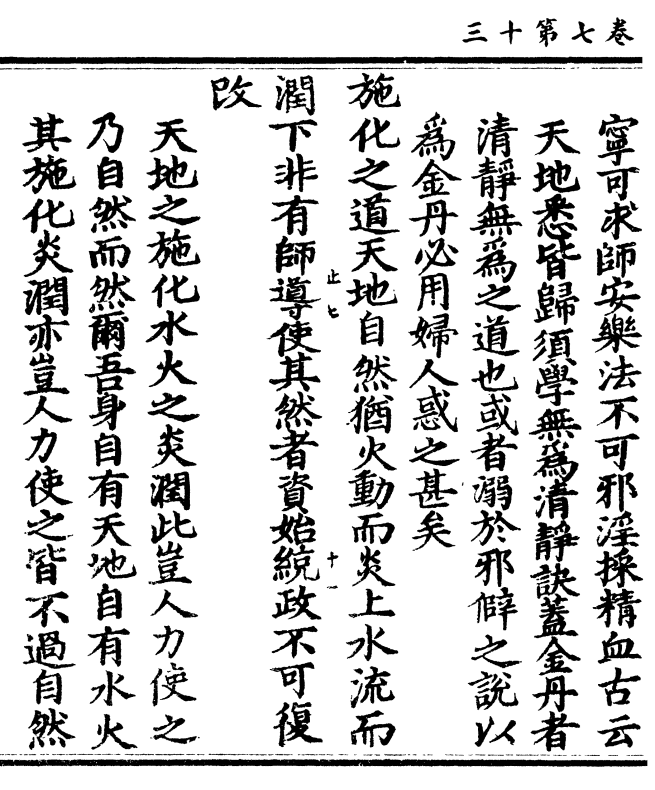 卷七第十三
寧可求師安樂法不可邪淫採精血古云
天地悉皆歸須學無爲清靜訣蓋金丹者
清靜無爲之道也或者溺於邪僻之說以
爲金丹必用婦人惑之甚矣
施化之道天地自然猶火動而炎上水流而
止七
十一
潤下非有師導使其然者資始統政不可復
改
天地之施化水火之炎潤此豈人力使之
乃自然而然爾吾身自有天地自有水火
其施化炎潤亦豈人力使之皆不過自然